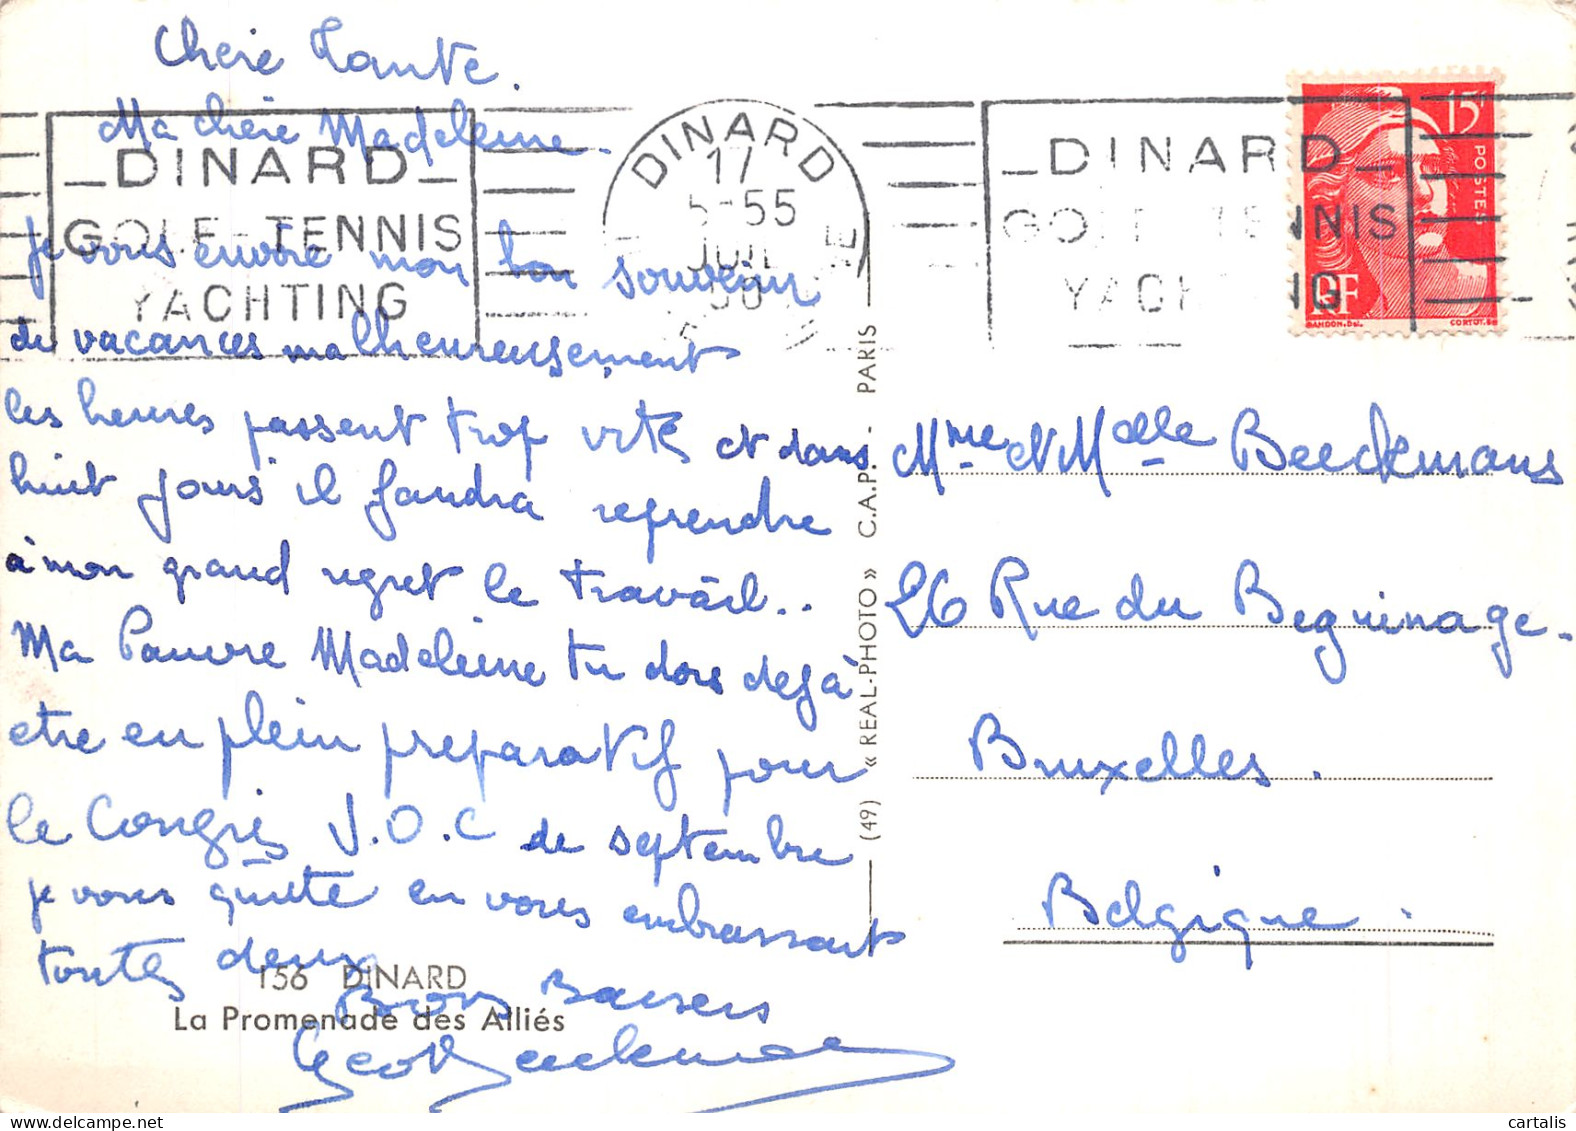 Chère Tante.
Ma chère Madeleine.
je vous envoie mon bon souvenir
de vacances malheureusement
les heures passent trop vite et dans
huit jours il faudra reprendre
à mon grand regret le travail..
Ma Pauvre Madeleine tu dois dejà
etre en plein preparatif pour
le Congrès J.O.C de septembre
je vous quitte en vous embrassant
toutes deux
Bons Baisers
156 DINARD
La Promenade des Alliés
DINARD
GOLF-TENNIS
YACHTING
DINARD
17
5-55
JUIL
50
DINARD
GOLF TENNIS
YACHTING
15F
POSTES
RF
GANDON.Del.
CORTOT.Sc
(49) « REAL-PHOTO » C.A.P. - PARIS
Mme et Melle Beeckmans
26 Rue du Beguinage.
Bruxelles.
Belgique.
cartalis